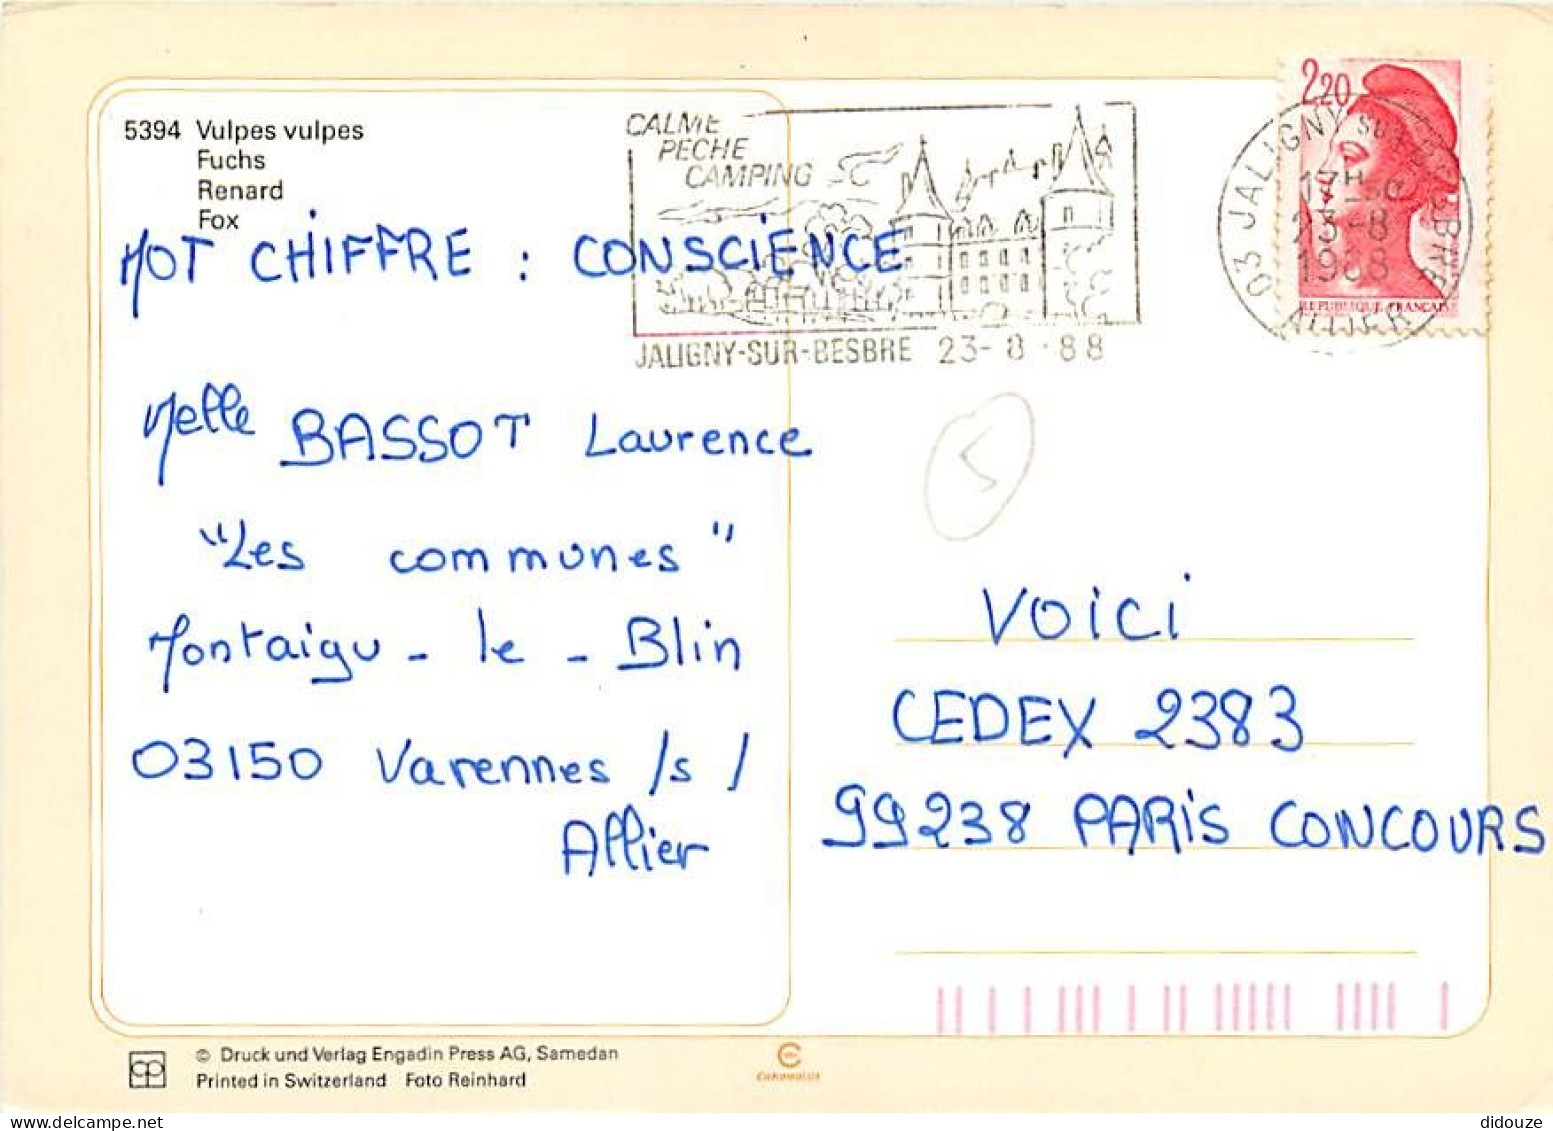 5394 Vulpes vulpes
Fuchs
Renard
Fox
MOT CHIFFRE : CONSCIENCE
Melle BASSOT Laurence
"Les communes"
Montaigu - le - Blin
03150 Varennes /s/
Allier
CALME
PECHE
CAMPING
JALIGNY-SUR-BESBRE 23-8-88
2,20
REPUBLIQUE FRANÇAISE
03 JALIGNY SUR BESBRE
23-8
1988
ALLIER
5
VOICI
CEDEX 2383
99238 PARIS CONCOURS
© Druck und Verlag Engadin Press AG, Samedan
Printed in Switzerland Foto Reinhard
didouze